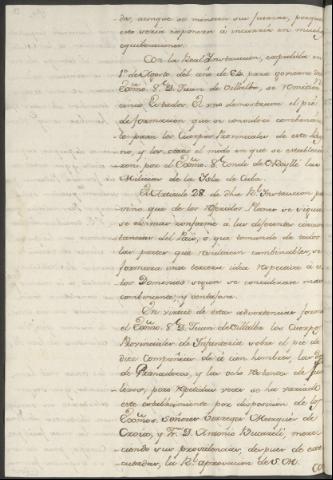 do, aunque se minoren sus fuerzas, porque
esto sería exponerse á incurrir en muchas
equibocaciones.
Con la Real Instruccion, expedida en
1º de Agosto del año de 64 para govierno del
Exmo. Sr. D. Juan de Villalba, se remitieron
cinco Estados. El uno demostraba el pié
de formacion que se consideró combenien-
te para los Cuerpos Provinciales de este Rey-
no, y los otros el modo en que se establecie-
ron por el Exmo. Sr. Conde de OReylli las
Milicias de la Isla de Cuba.
El Articulo 28 de dha Rl. Instruccion pre-
vino que de los referidos Planes se siguie-
se el mas conforme á las diferentes circuns-
tancias del Pais, o que tomando de todos
las partes que resultasen combinables, se
formara una tercera idea respectiva á es-
tos Dominios segun se considerase mas
combeniente, y ventajosa.
En virtud de estas advertencias formó
el Exmo. Sr. D. Juan de Villalba los Cuerpos
Provinciales de Infanteria sobre el pie de
diez Compañias de á cien hombres, las dos
de Granaderos, y las ocho restantes de fusi-
leros, pero repetidas veces se ha variado
este establecimiento por disposicion de los
Exmos. Señores Virreyes Marqués de
Croix, y Fr. D. Antonio Bucareli, mere-
ciendo sus providencias, despues de exe-
cutadas, la Rl. aprovacion de S. M.